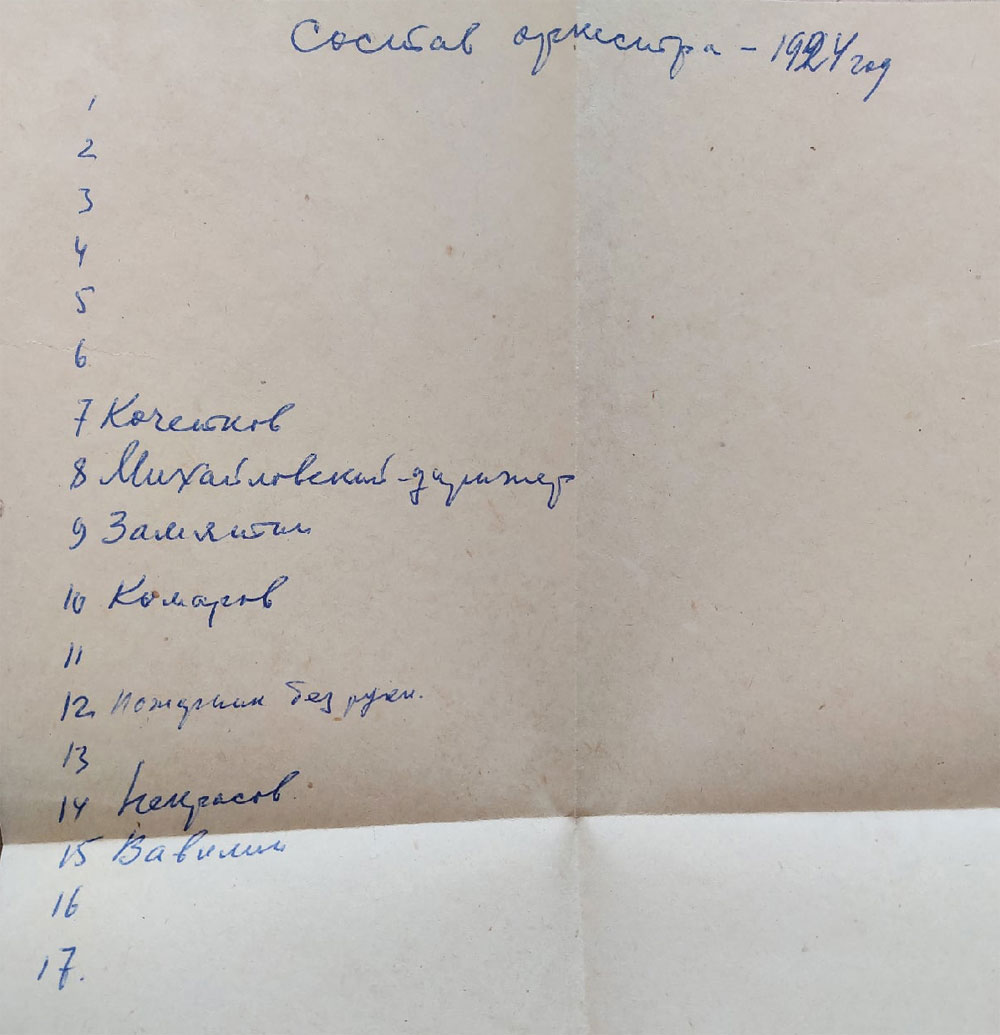 Состав оркестра - 1924 год
1
2
3
4
5
6
7 Кочетков
8 Михайловский - дирижер
9 Замятин
10 Комаров
11
12 Пожарник без руки.
13
14 Некрасов
15 Вавилин
16
17.